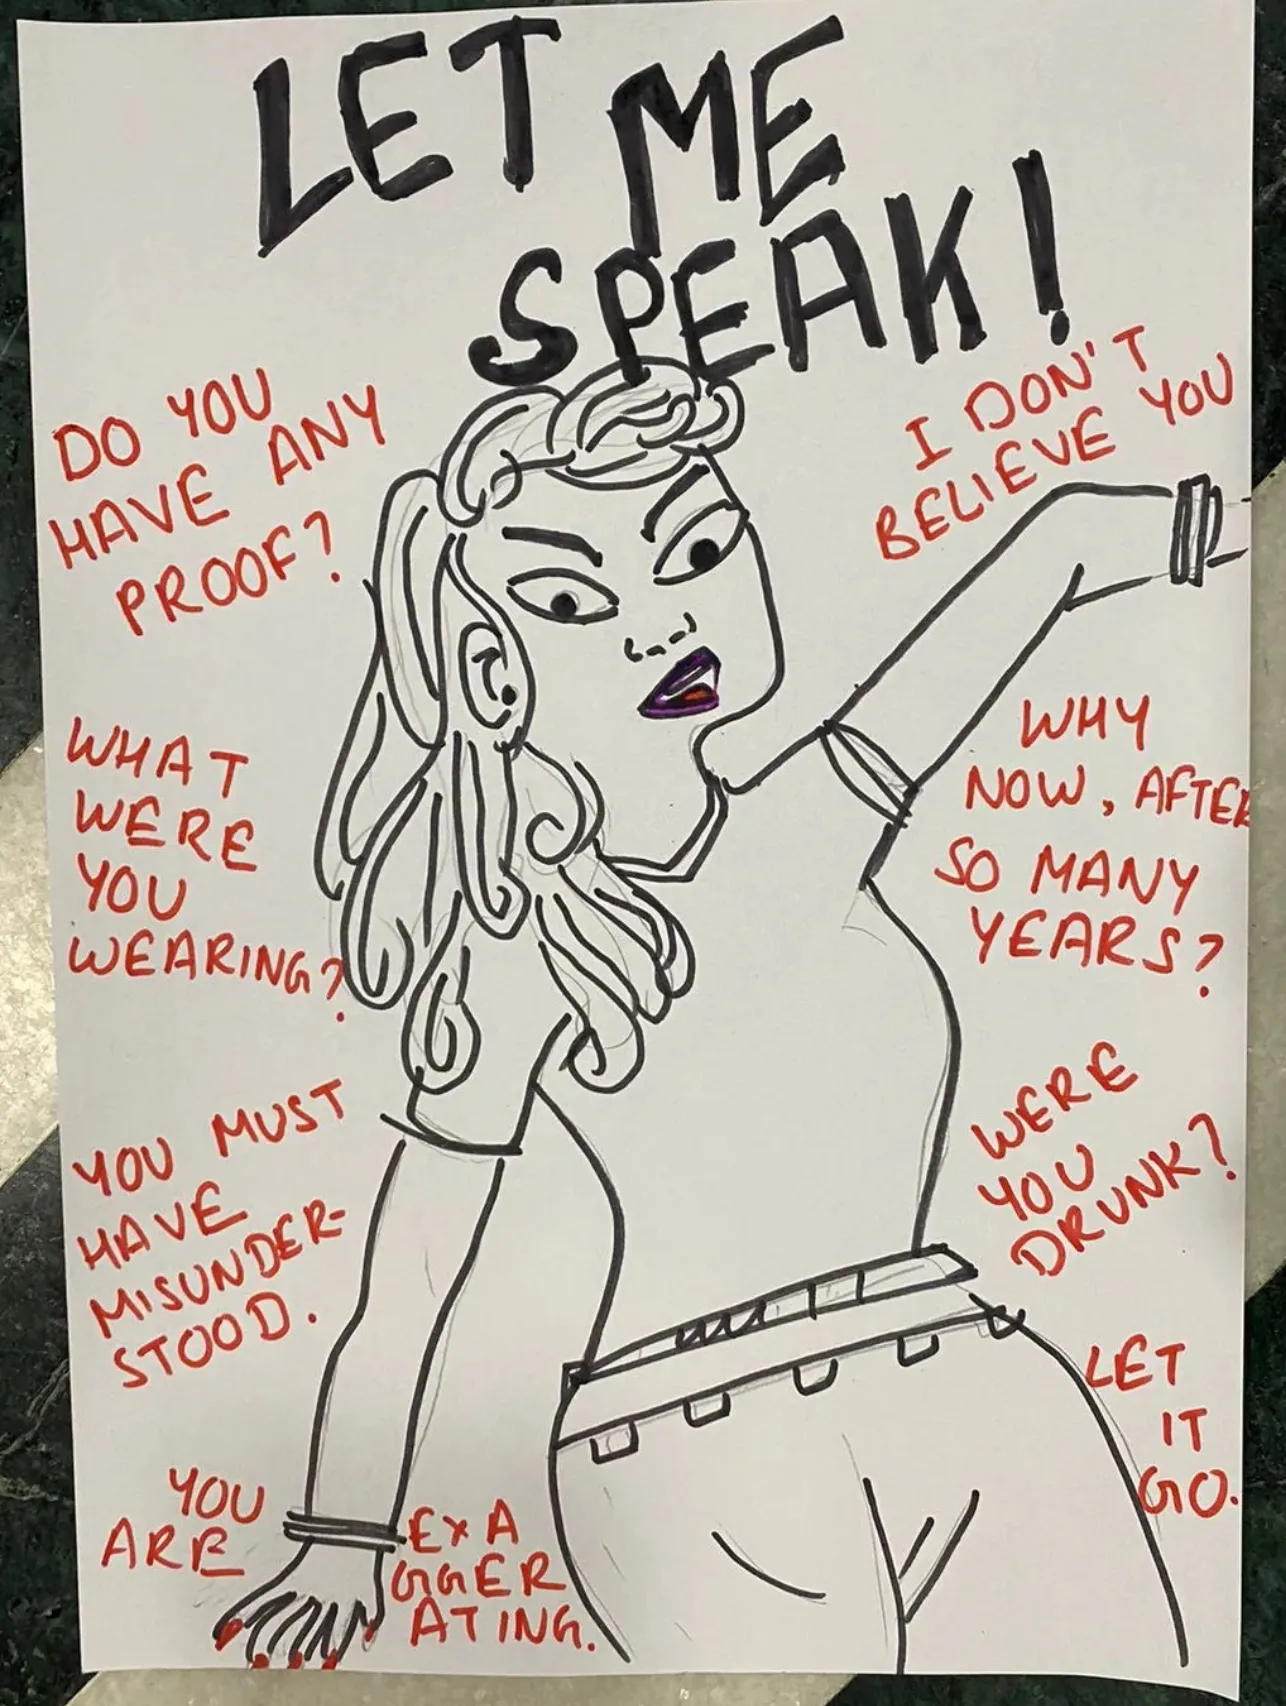 LET ME
SPEAK!
DO YOU
HAVE ANY
PROOF?
I DON'T
BELIEVE YOU
WHAT
WERE
YOU
WEARING?
WHY
NOW, AFTER
SO MANY
YEARS?
YOU MUST
HAVE
MISUNDER-
STOOD.
WERE
YOU
DRUNK?
LET
IT
GO.
YOU
ARE
EXA
GGER
ATING.